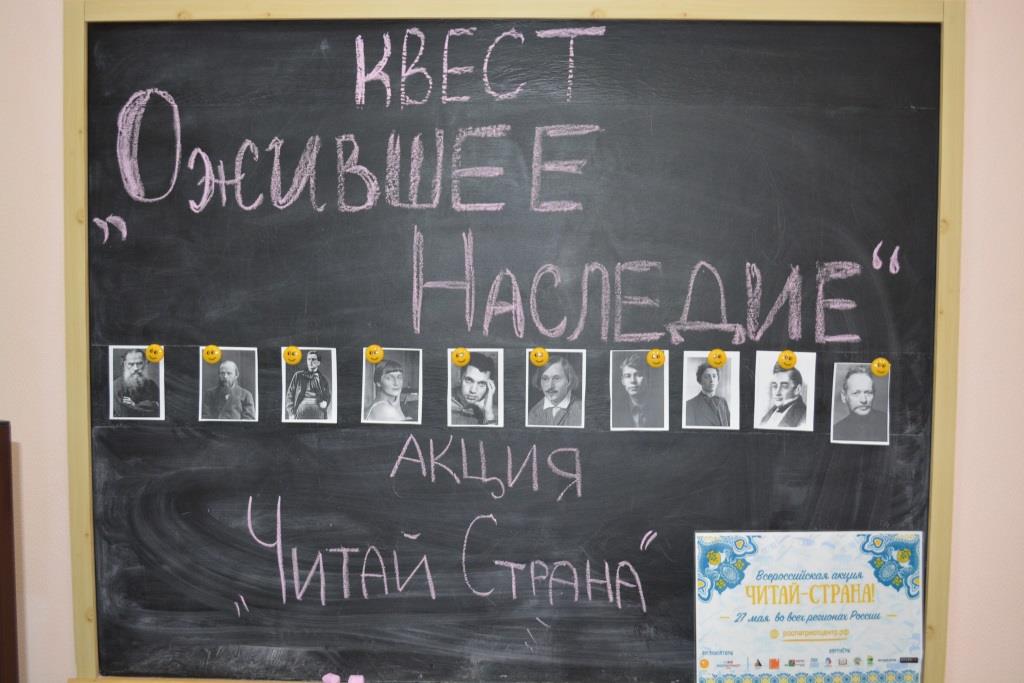 КВЕСТ
„Ожившее
Наследие“
АКЦИЯ
„Читай Страна“
Всероссийская акция
ЧИТАЙ-СТРАНА!
27 мая во всех регионах России
роспатриотцентр.рф